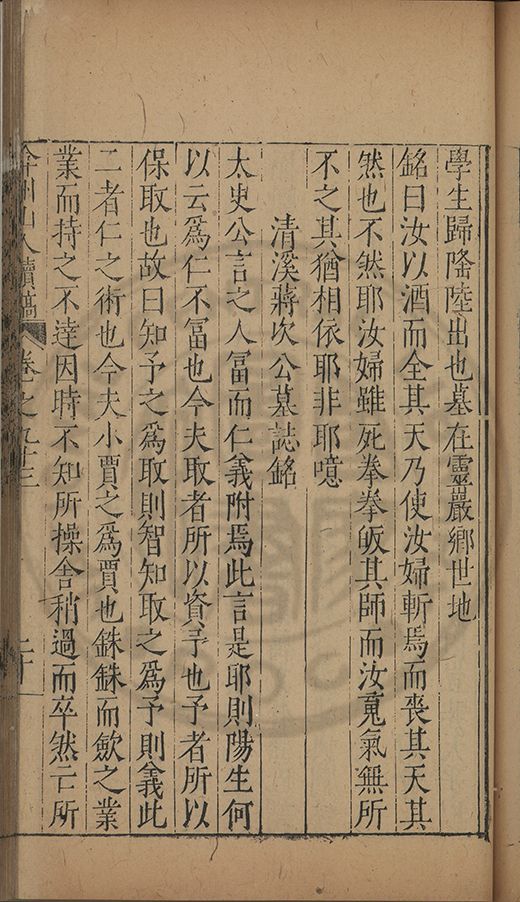 學生歸隆陸出也墓在靈巖鄉世地
銘曰汝以酒而全其天乃使汝婦斬焉而喪其天其
然也不然耶汝婦雖死拳拳皈其師而汝䰟氣無所
不之其猶相依耶非耶噫
清溪蔣次公墓誌銘
太史公言之人冨而仁義附焉此言是耶則陽生何
以云爲仁不冨也今夫取者所以資予也予者所以
保取也故曰知予之爲取則智知取之爲予則義此
二者仁之術也今夫小賈之爲賈也銖銖而斂之業
業而持之不逹因時不知所操舍稍過而卒然亡所
弇州山人續稿 卷之九十三 二十